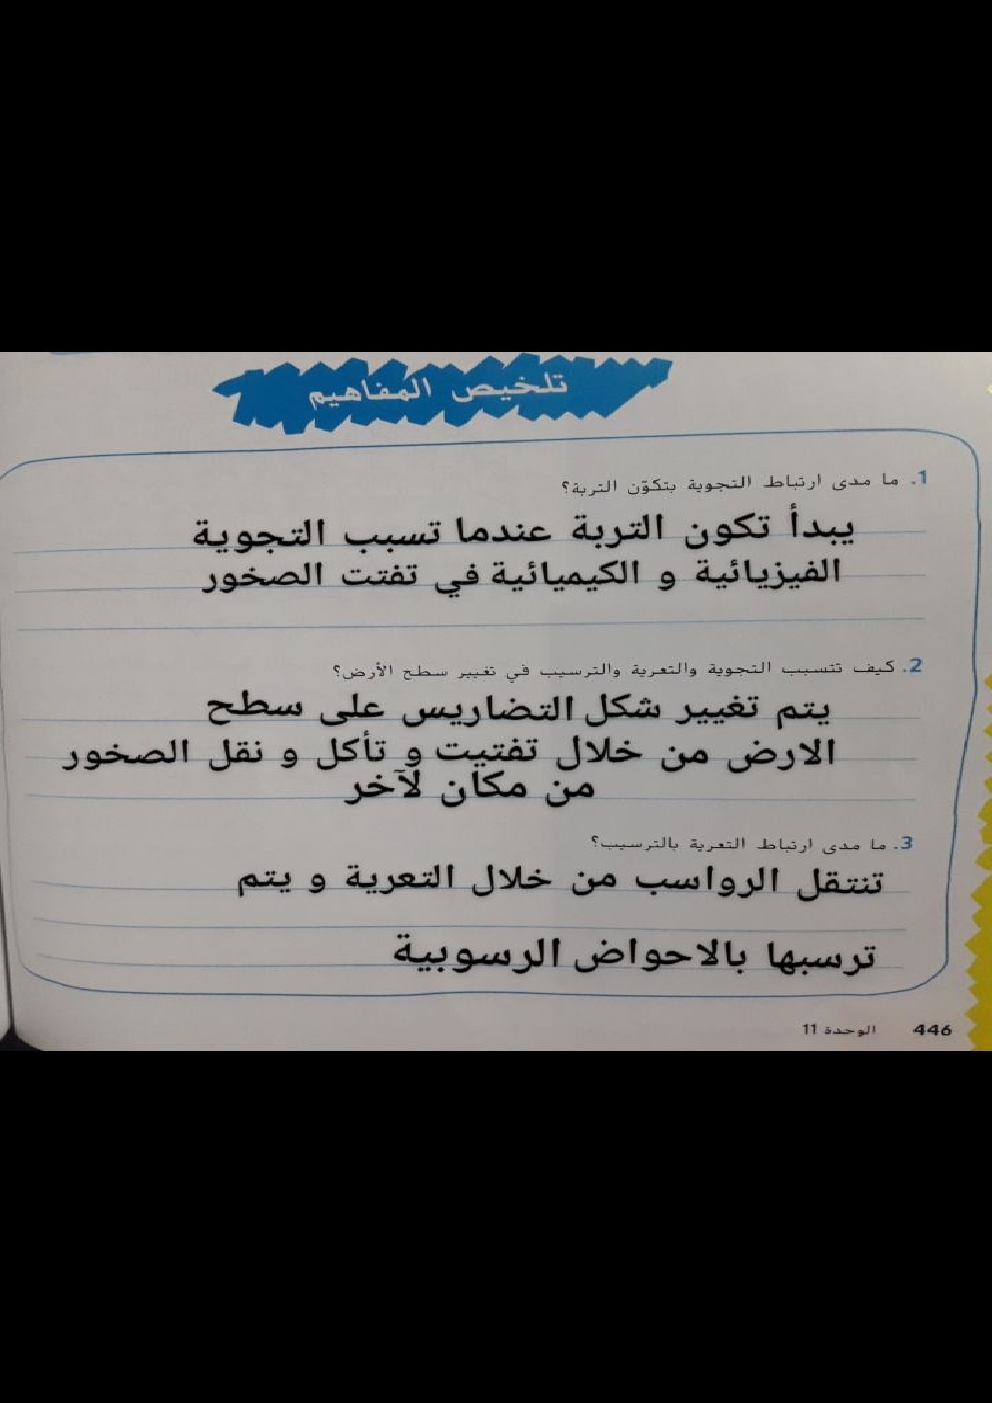 تلخيص المفاهيم
1. ما مدى ارتباط التجوية بتكوّن التربة؟
يبدأ تكون التربة عندما تسبب التجوية
الفيزيائية و الكيميائية في تفتت الصخور
2. كيف تتسبب التجوية والتعرية والترسيب في تغيير سطح الأرض؟
يتم تغيير شكل التضاريس على سطح
الارض من خلال تفتيت و تأكل و نقل الصخور
من مكان لآخر
3. ما مدى ارتباط التعرية بالترسيب؟
تنتقل الرواسب من خلال التعرية و يتم
ترسبها بالاحواض الرسوبية
446 الوحدة 11